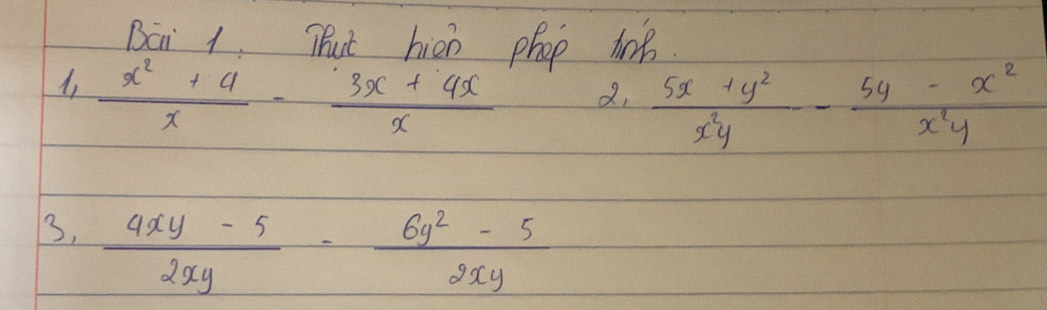 Bài 1. Thực hiện phép tính.
1, (x² + 4)/x - (3x + 4x)/x 2, (5x + y²)/(x²y) - (5y - x²)/(x²y)
3, (4xy - 5)/(2xy) - (6y² - 5)/(2xy)